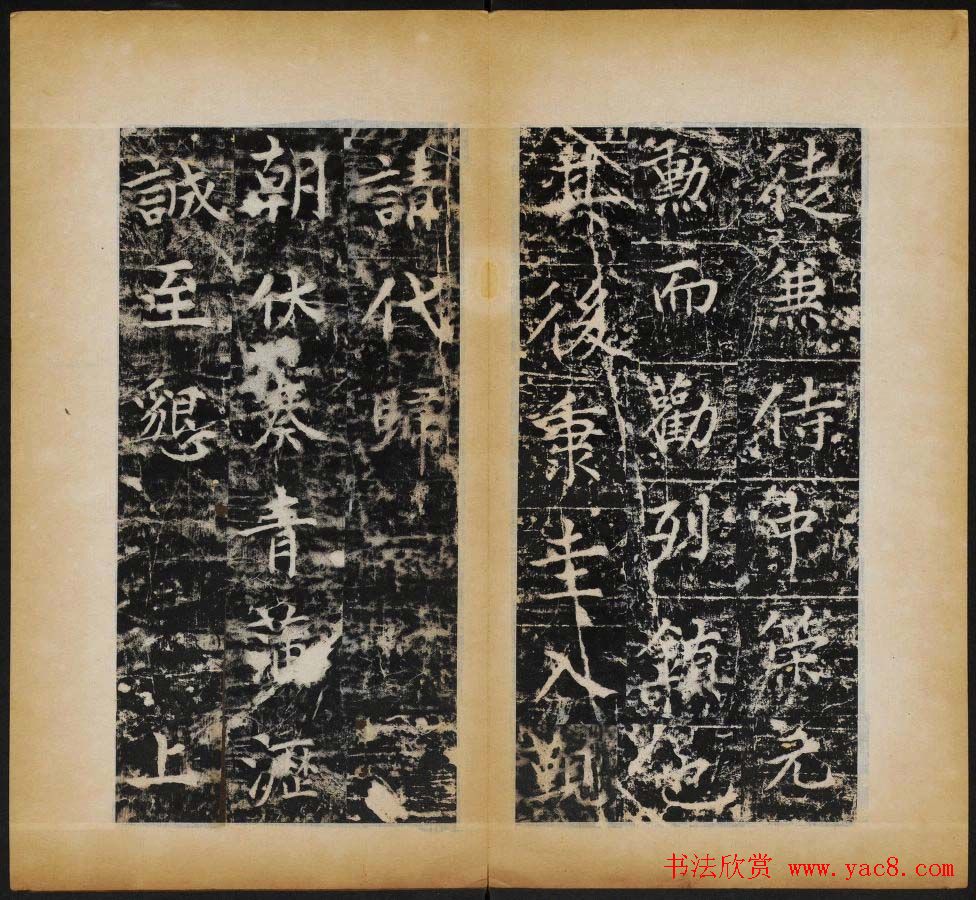 徒兼侍中策元
勳而勸列鎮也
其後秉圭入覲
請代歸
朝伏奏青蒲瀝
誠至懇上
书法欣赏 www.yac8.com